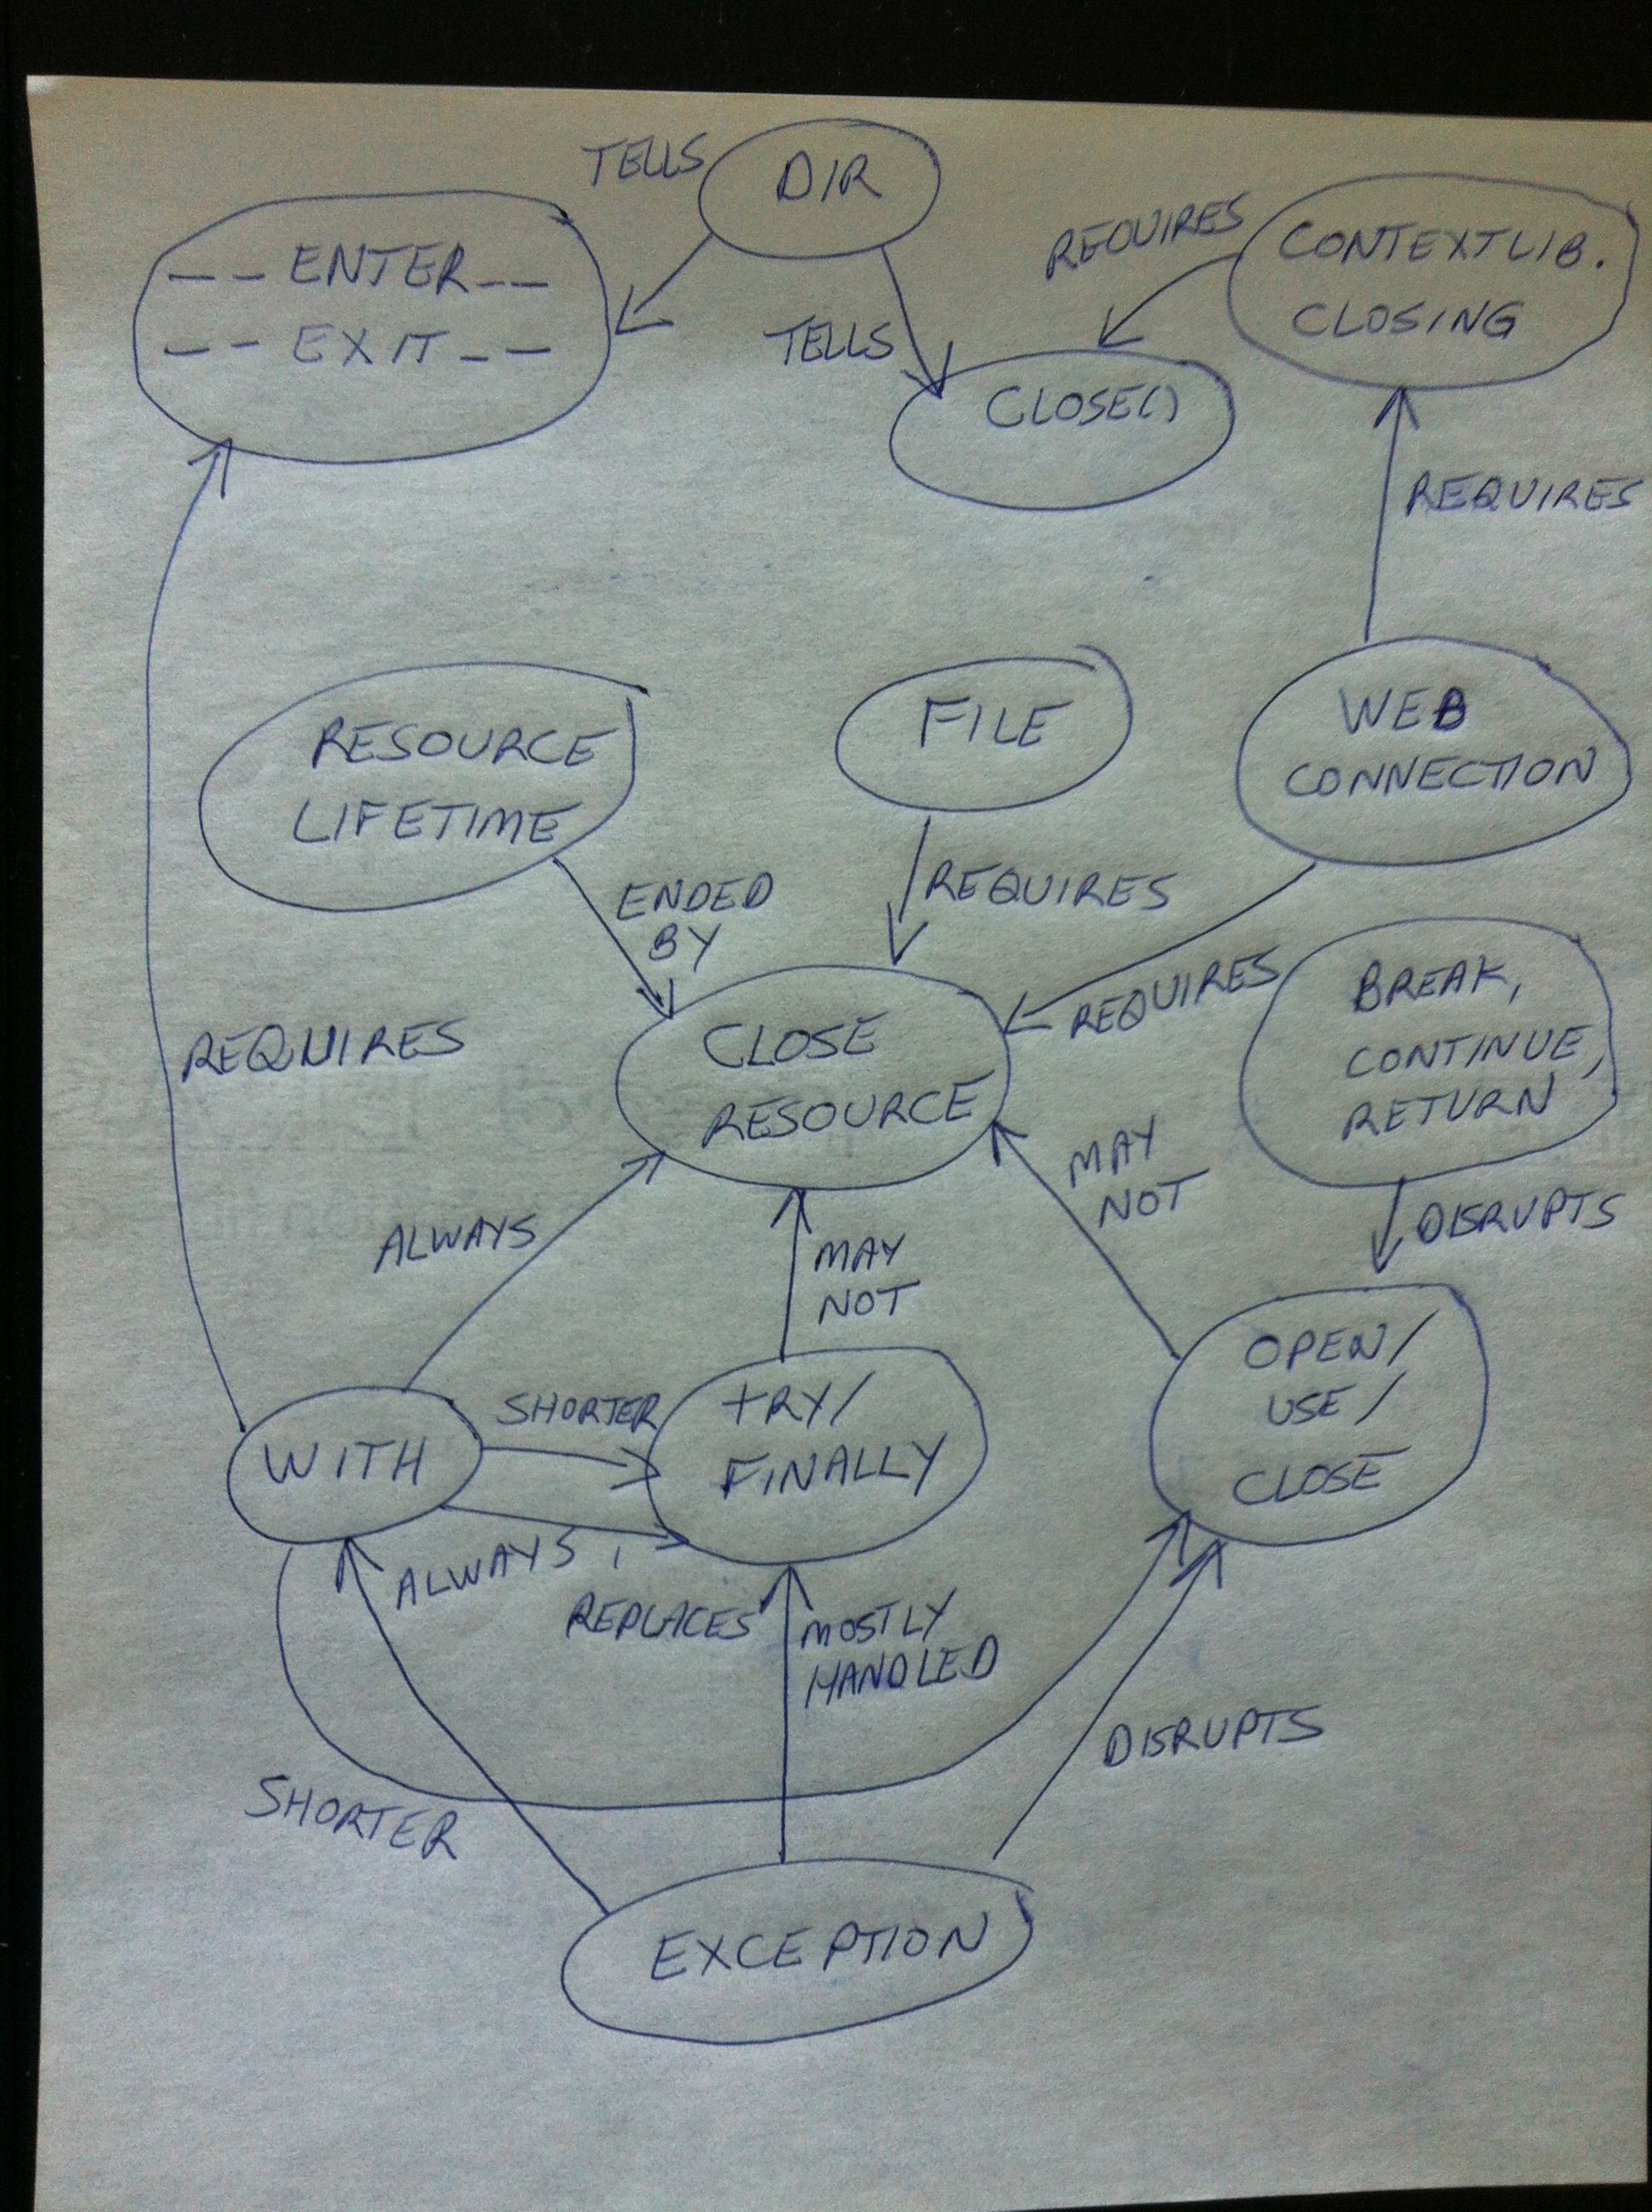 TELLS
DIR
REQUIRES
CONTEXTLIB.
CLOSING
__ENTER__
__EXIT__
TELLS
CLOSE()
REQUIRES
RESOURCE
LIFETIME
FILE
WEB
CONNECTION
ENDED
BY
REQUIRES
REQUIRES
BREAK,
CONTINUE,
RETURN
REQUIRES
CLOSE
RESOURCE
MAY
NOT
DISRUPTS
ALWAYS
MAY
NOT
OPEN/
USE/
CLOSE
WITH
SHORTER
TRY/
FINALLY
ALWAYS,
REPLACES
MOSTLY
HANDLED
DISRUPTS
SHORTER
EXCEPTION